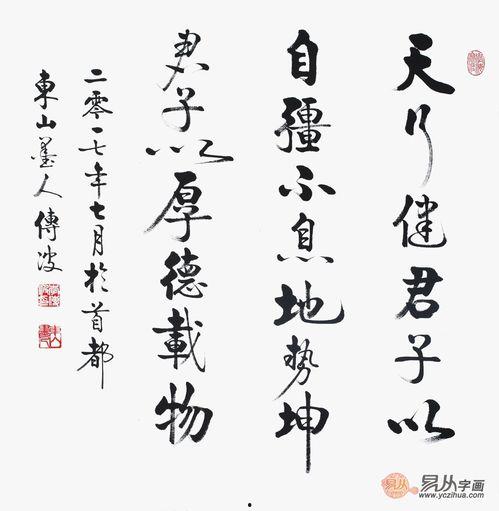 天行健君子以
自彊不息地势坤
君子以厚德載物
二零一七年七月於首都
東山墨人傳波
易从字画
www.yczihua.com